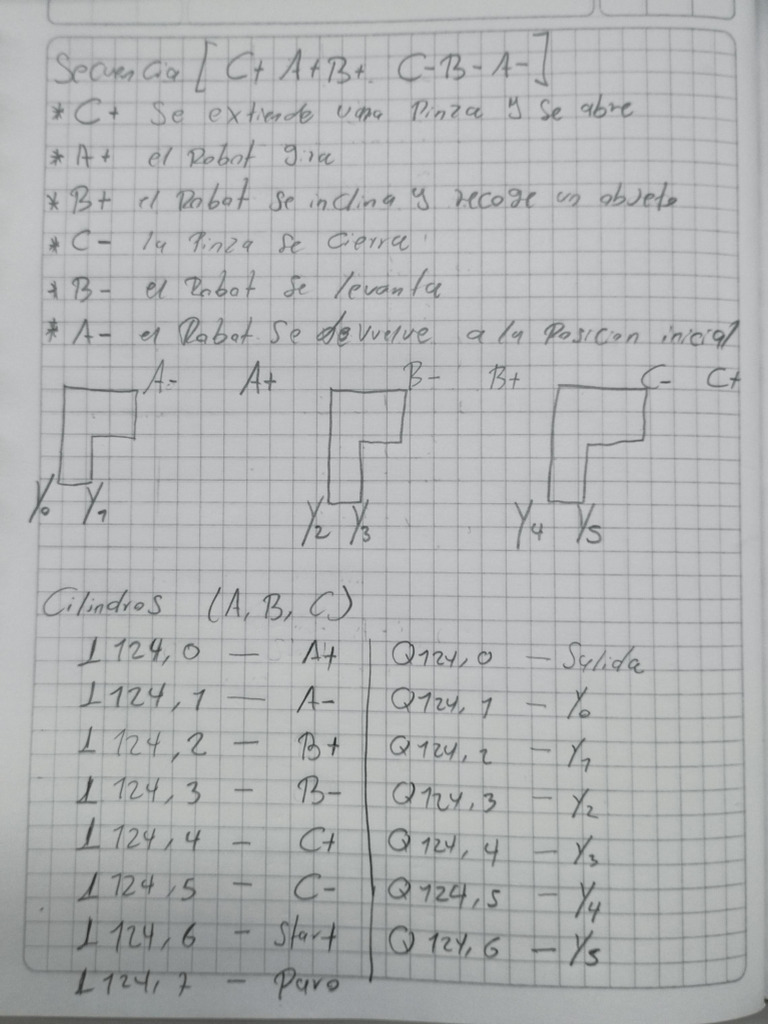 Secuencia [ C+ A+B+ C-B-A-]
* C+ Se extiende una Pinza y se abre
* A+ el Robot gira
* B+ el Robot se inclina y recoge un objeto
* C- la Pinza se cierra
* B- el Robot se levanta
* A- el Robot se devuelve a la Posicion inicial
A- A+ B- B+ C- C+
Y0 Y1 Y2 Y3 Y4 Y5
Cilindros (A, B, C)
I 124,0 - A+ Q124,0 - Salida
I 124,1 - A- Q124,1 - Y0
I 124,2 - B+ Q124,2 - Y1
I 124,3 - B- Q124,3 - Y2
I 124,4 - C+ Q124,4 - Y3
I 124,5 - C- Q124,5 - Y4
I 124,6 - Start Q124,6 - Y5
I 124,7 - Paro